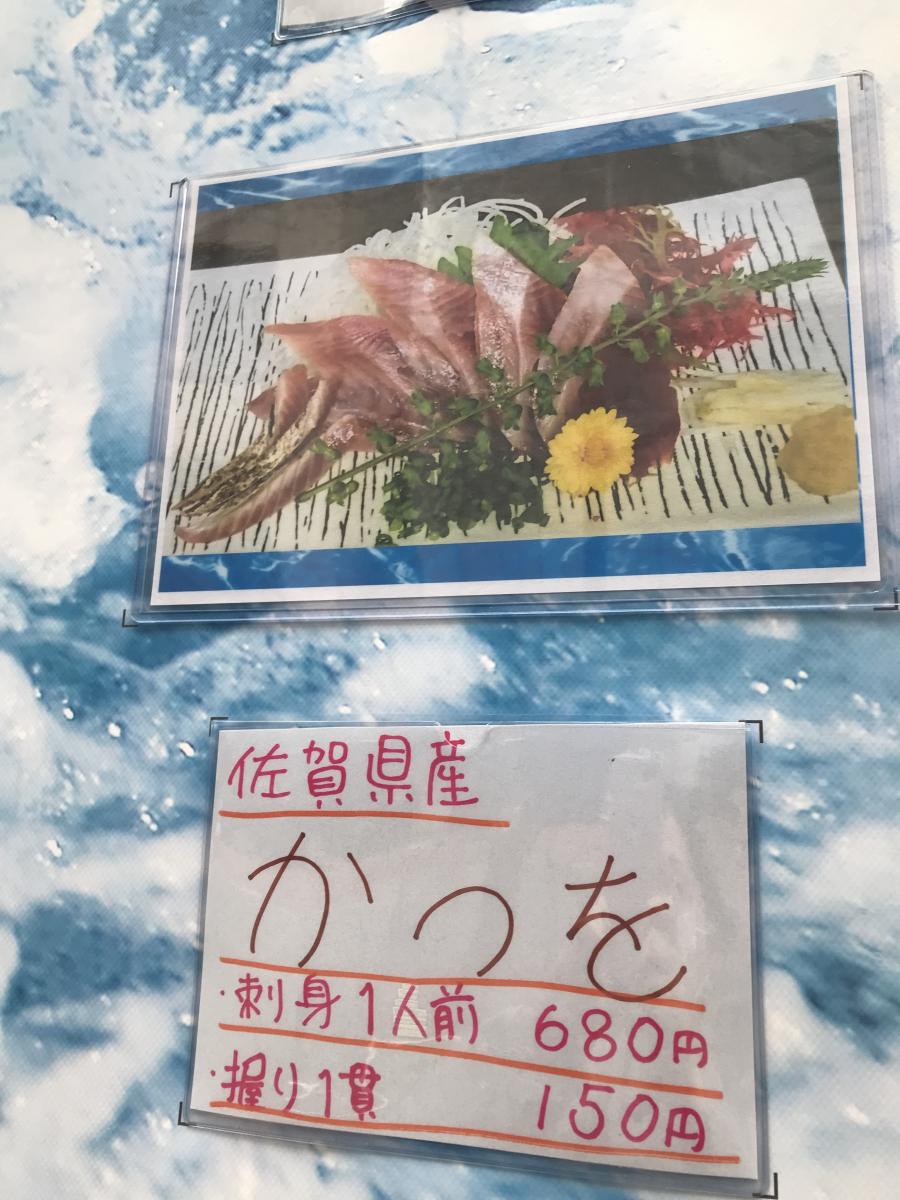 佐賀県産
かつを
・刺身1人前 680円
・握り1貫 150円